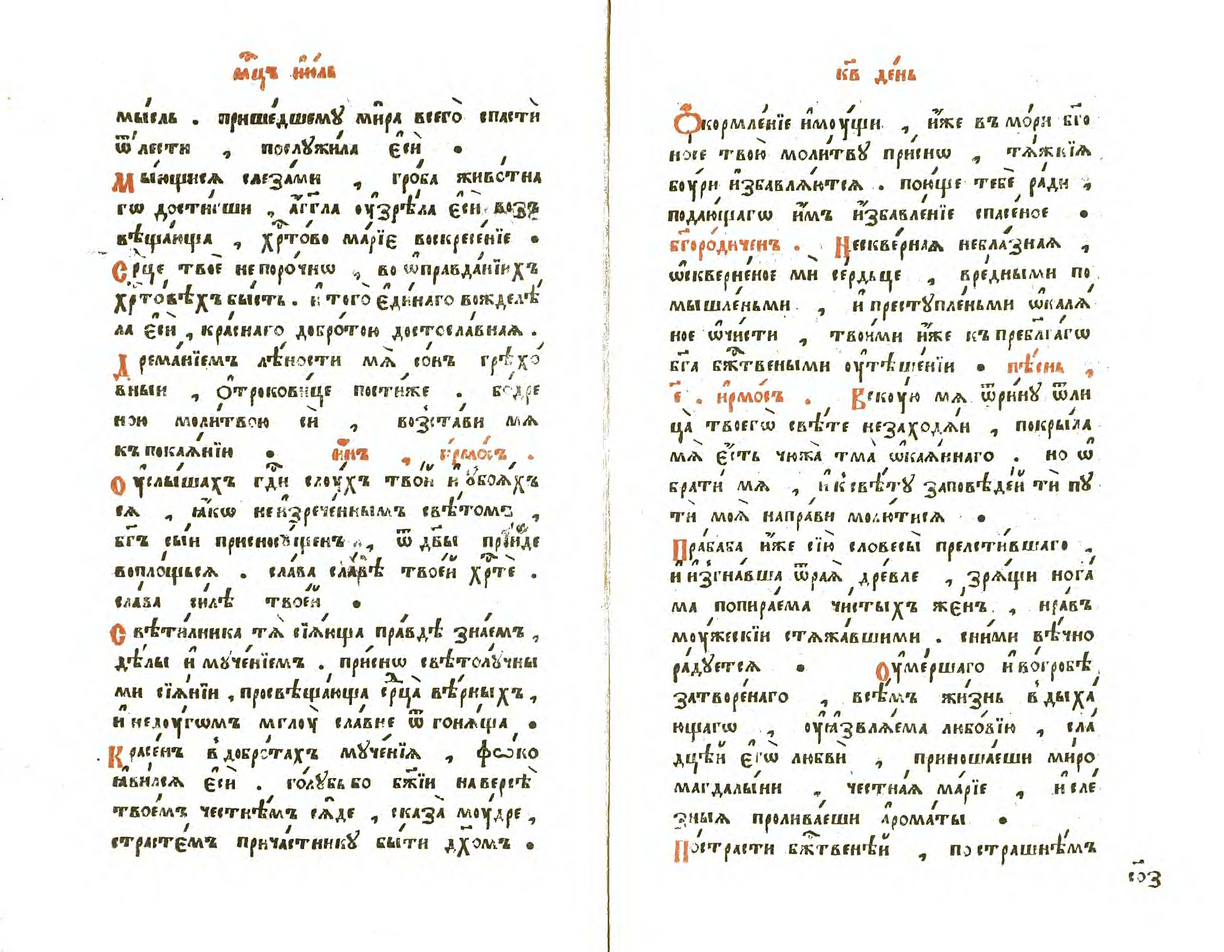 мц҃ъ ию҃ль
мы́сль . прише́дшемꙋ ми́ра всего̀ спасти
ѿ лести , послꙋжи́ла є҆сѝ .
Мы́ющисѧ слеза́ми , гро́ба живо́тна
гѡ дости́гши , а҆́гг҃ла оу҆зрѣ́ла є҆сѝ возъ
вѣща́юща , хр҃то́во мр҃і́є воскресе́нїе .
Ср҃це твоѐ непоро́чнѡ , во ѡ҆правда́нїихъ
хр҃то́вѣхъ бы́сть . и҆ того̀ є҆ди́наго вожделѣ́
ла є҆сѝ , кра́снаго добро́тою досто́славнаѧ .
Дрема́нїемъ лѣ́ности мѧ̀ со́нъ грѣхо́
вныи , ѻ҆трокови́це пости́же . бо́дре
ною моли́твою сѝ , возста́ви мѧ
къ покаѧ́нїю . и҆́нъ , і҆рмо́съ .
Оу҆слы́шахъ гд҃и слꙋ́хъ тво́й и҆ оу҆боѧ́хъ
сѧ , ꙗ҆́кѡ неи҆зрече́ннымъ свѣ́томъ ,
бг҃ъ сы́и присносꙋ́щенъ , ѿ дв҃ы прїи́де
вопло́щьсѧ . сла́ва сла́вѣ твое́й хр҃тѐ .
сла́ва си́лѣ твое́й .
Свѣти́лника тѧ̀ сїѧ́юща пра́вдѣ зна́емъ ,
дѣ́лы и҆ мꙋче́нїемъ . при́снѡ свѣ́толꙋ́чны
ми сїѧ́нїи , просвѣща́юща ср҃ца̀ вѣ́рныхъ ,
и҆ недꙋ́гѡмъ мглꙋ̀ сла́вне ѿ гонѧ́ща .
Кра́сенъ в добро́тахъ мꙋче́нїѧ , фѡ́ко
ꙗ҆ви́лсѧ є҆сѝ . го́лꙋбь бо бж҃їи на ве́рсѣ
твое́мъ честнѣ́мъ сѧ́де , сказа̀ мꙋ́дре ,
страсте́мъ прича́стникꙋ бы́ти дх҃омъ .
кв҃ де́нь
Ѻ҆кормле́нїе и҆мꙋ́щи , и҆́же въ мо́ри бг҃о
но́сє твою̀ моли́твꙋ при́снѡ , тѧ́жкїѧ
бꙋ́ри и҆збавлѧ́ютсѧ . пою́ще тебѐ ра́ди ,
подаю́щагѡ и҆̀мъ и҆збавле́нїе спасе́ное .
бг҃оро́диченъ . Нескве́рнаѧ небла́знаѧ ,
ѡ҆скверне́ное мѝ се́рдьце , вре́дными по
мышле́ньми , и҆ престꙋпле́ньми ѡ҆калѧ́
ное ѡ҆чи́сти , твои́ми и҆́же къ пребл҃га́гѡ
бг҃а бж҃твеными оу҆тѣше́нїи . пѣ́снь ,
є҃ . і҆рмо́съ . Вскꙋ́ю мѧ ѿри́нꙋ ѿ ли
ца̀ твоегѡ̀ свѣ́те незаходѧ́и , покры́ла
мѧ̀ є҆́сть чюжа̀ тма̀ ѡ҆каѧ́ннаго . но ѡ
брати́ мѧ , и҆ к свѣ́тꙋ за́повѣдей тѝ пꙋ
тѝ моѧ̀ напра́ви молю́тисѧ .
Праба́ба и҆́же сїю̀ словесы̀ прелсти́вшаго ,
и҆ и҆згна́вша ѿ раѧ̀ дре́вле , зрѧ́щи нога́
ма попира́ема чи́стыхъ же́нъ , нра́въ
мꙋ́жескїи стѧжа́вшими . сни́ми вѣ́чно
ра́дꙋетсѧ . Оу҆ме́ршаго и҆ во гро́бѣ
затворе́наго , всѣ́мъ жи́знь в дыха́
ющагѡ , оу҆ꙗ҆звлѧ́ема любо́вїю , сла́
дцѣй є҆гѡ̀ любвѝ , прино́шаеши ми́ро
магдалы́ни , честна́ѧ мр҃і́е , и҆ сле́
зныѧ пролива́еши а҆рома́ты .
По стра́сти бж҃твенѣй , по стра́шнѣмъ